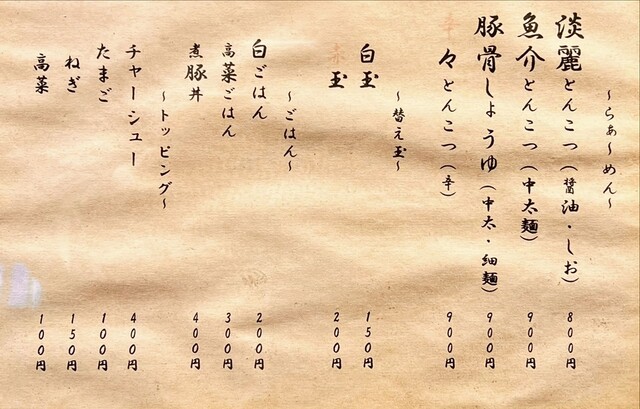 ～らぁ～めん～
淡麗とんこつ(醤油・しお) 800円
魚介とんこつ(中太麺) 900円
豚骨しょうゆ(中太・細麺) 900円
辛々とんこつ(辛) 900円
～替え玉～
白玉 150円
赤玉 200円
～ごはん～
白ごはん 200円
高菜ごはん 300円
煮豚丼 400円
～トッピング～
チャーシュー 400円
たまご 100円
ねぎ 150円
高菜 100円